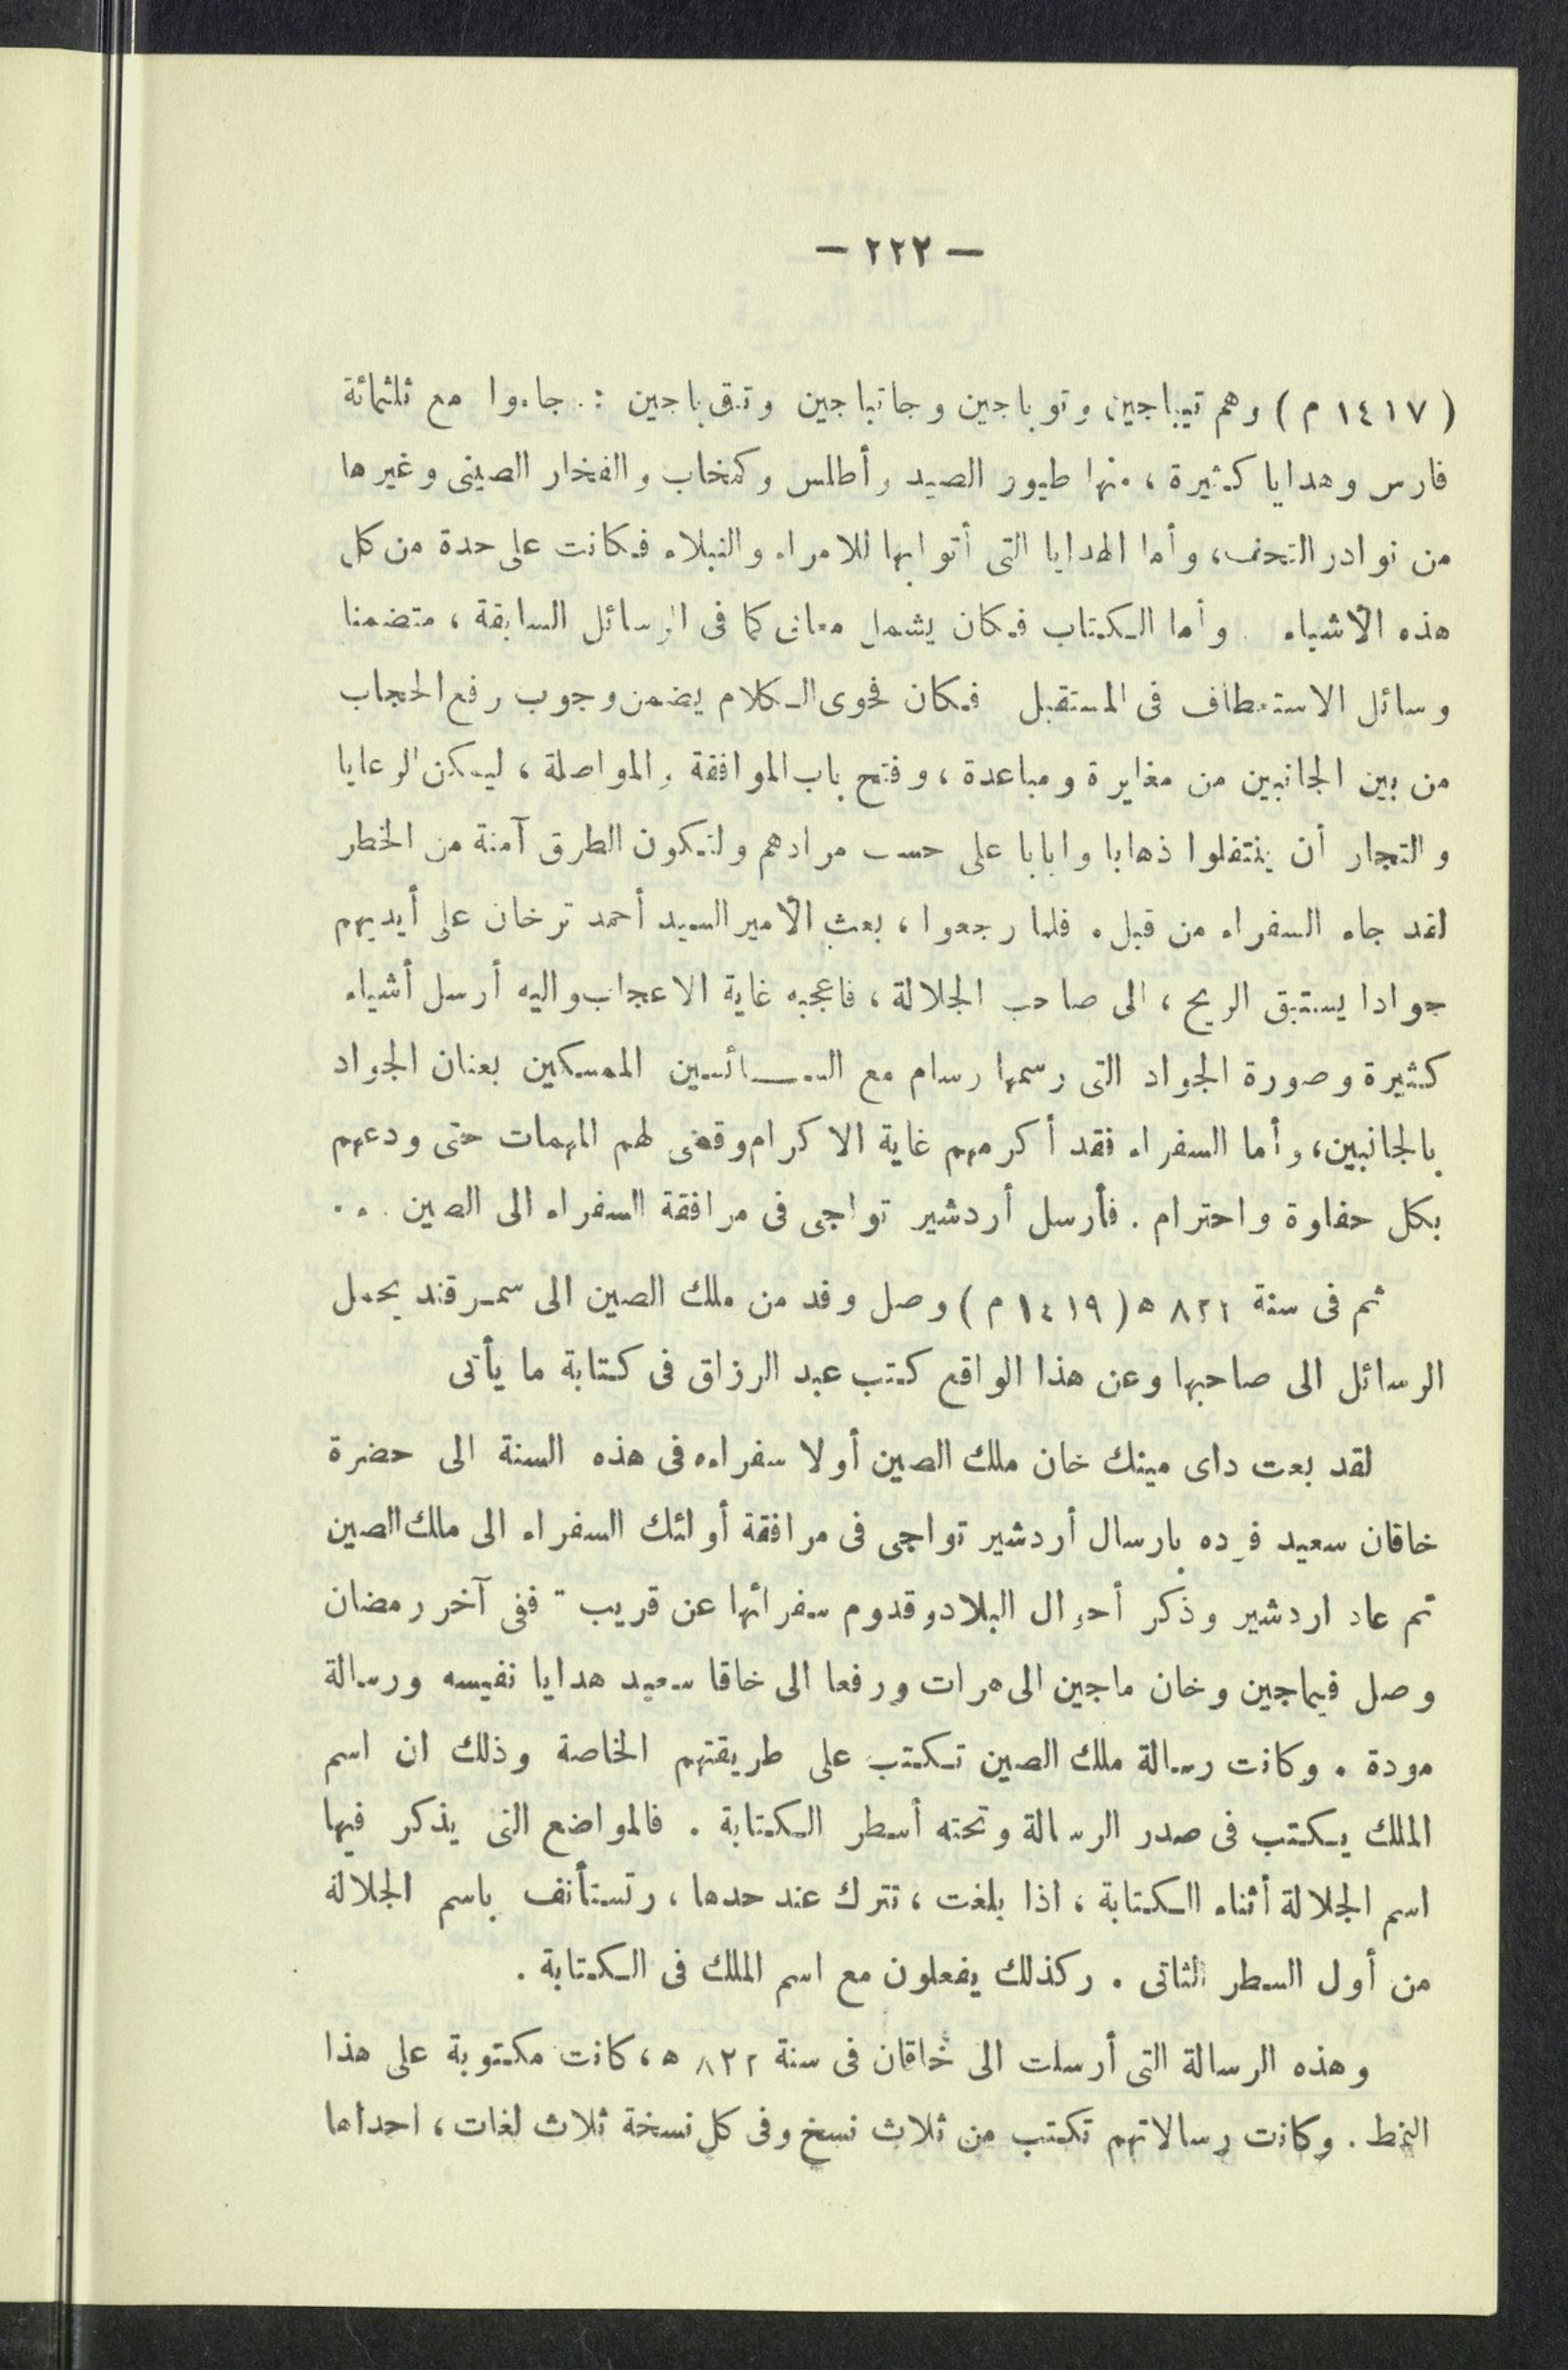 — ٢٢٢ —
( ١٤١٧ م ) وهم تيباجين وتوباجين وجاتباجين وتق باجين : جاءوا مع ثلثمائة
فارس وهدايا كثيرة ، منها طيور الصيد وأطلس وكمخاب والفخار الصينى وغيرها
من نوادر التحف ، وأما الهدايا التى أتوا بها للامراء والنبلاء فكانت على حدة من كل
هذه الأشياء . وأما الكتاب فكان يشمل معانى كما فى الرسائل السابقة ، متضمنا
وسائل الاستعطاف فى المستقبل فكان فحوى الكلام يضمن وجوب رفع الحجاب
من بين الجانبين من مغايرة ومباعدة ، وفتح باب الموافقة والمواصلة ، ليمكن الرعايا
والتجار أن ينتقلوا ذهابا وايابا على حسب مرادهم ولتكون الطرق آمنة من الخطر
لقد جاء السفراء من قبل . فلما رجعوا ، بعث الأمير السيد أحمد ترخان على أيديهم
جوادا يستبق الريح ، الى صاحب الجلالة ، فاعجبه غاية الاعجاب واليه أرسل أشياء
كثيرة وصورة الجواد التى رسمها رسام مع السائسين الممسكين بعنان الجواد
بالجانبين ، وأما السفراء فقد أكرمهم غاية الاكرام وقضى لهم المهمات حتى ودعهم
بكل حفاوة واحترام . فأرسل أردشير تواجى فى مرافقة السفراء الى الصين . . .
ثم فى سنة ٨٢٢ ه ( ١٤١٩ م ) وصل وفد من ملك الصين الى سمرقند يحمل
الرسائل الى صاحبها وعن هذا الواقع كتب عبد الرزاق فى كتابة ما يأتى
لقد بعت داى مينك خان ملك الصين أولا سفراءه فى هذه السنة الى حضرة
خاقان سعيد فرده بارسال أردشير تواجى فى مرافقة أولئك السفراء الى ملك الصين
تم عاد اردشير وذكر أحوال البلاد وقدوم سفرائها عن قريب - ففى آخر رمضان
وصل فيماجين وخان ماجين الى هرات ورفعا الى خاقا سعيد هدايا نفيسه ورسالة
مودة . وكانت رسالة ملك الصين تكتب على طريقتهم الخاصة وذلك ان اسم
الملك يكتب فى صدر الرسالة وتحته أسطر الكتابة . فالمواضع التى يذكر فيها
اسم الجلالة أثناء الكتابة ، اذا بلغت ، تترك عند حدها ، وتستأنف باسم الجلالة
من أول السطر الثانى . وكذلك يفعلون مع اسم الملك فى الكتابة .
وهذه الرسالة التى أرسلت الى خاقان فى سنة ٨٢٢ ه ، كانت مكتوبة على هذا
النمط . وكانت رسالاتهم تكتب من ثلاث نسخ وفى كل نسخة ثلاث لغات ، احداها